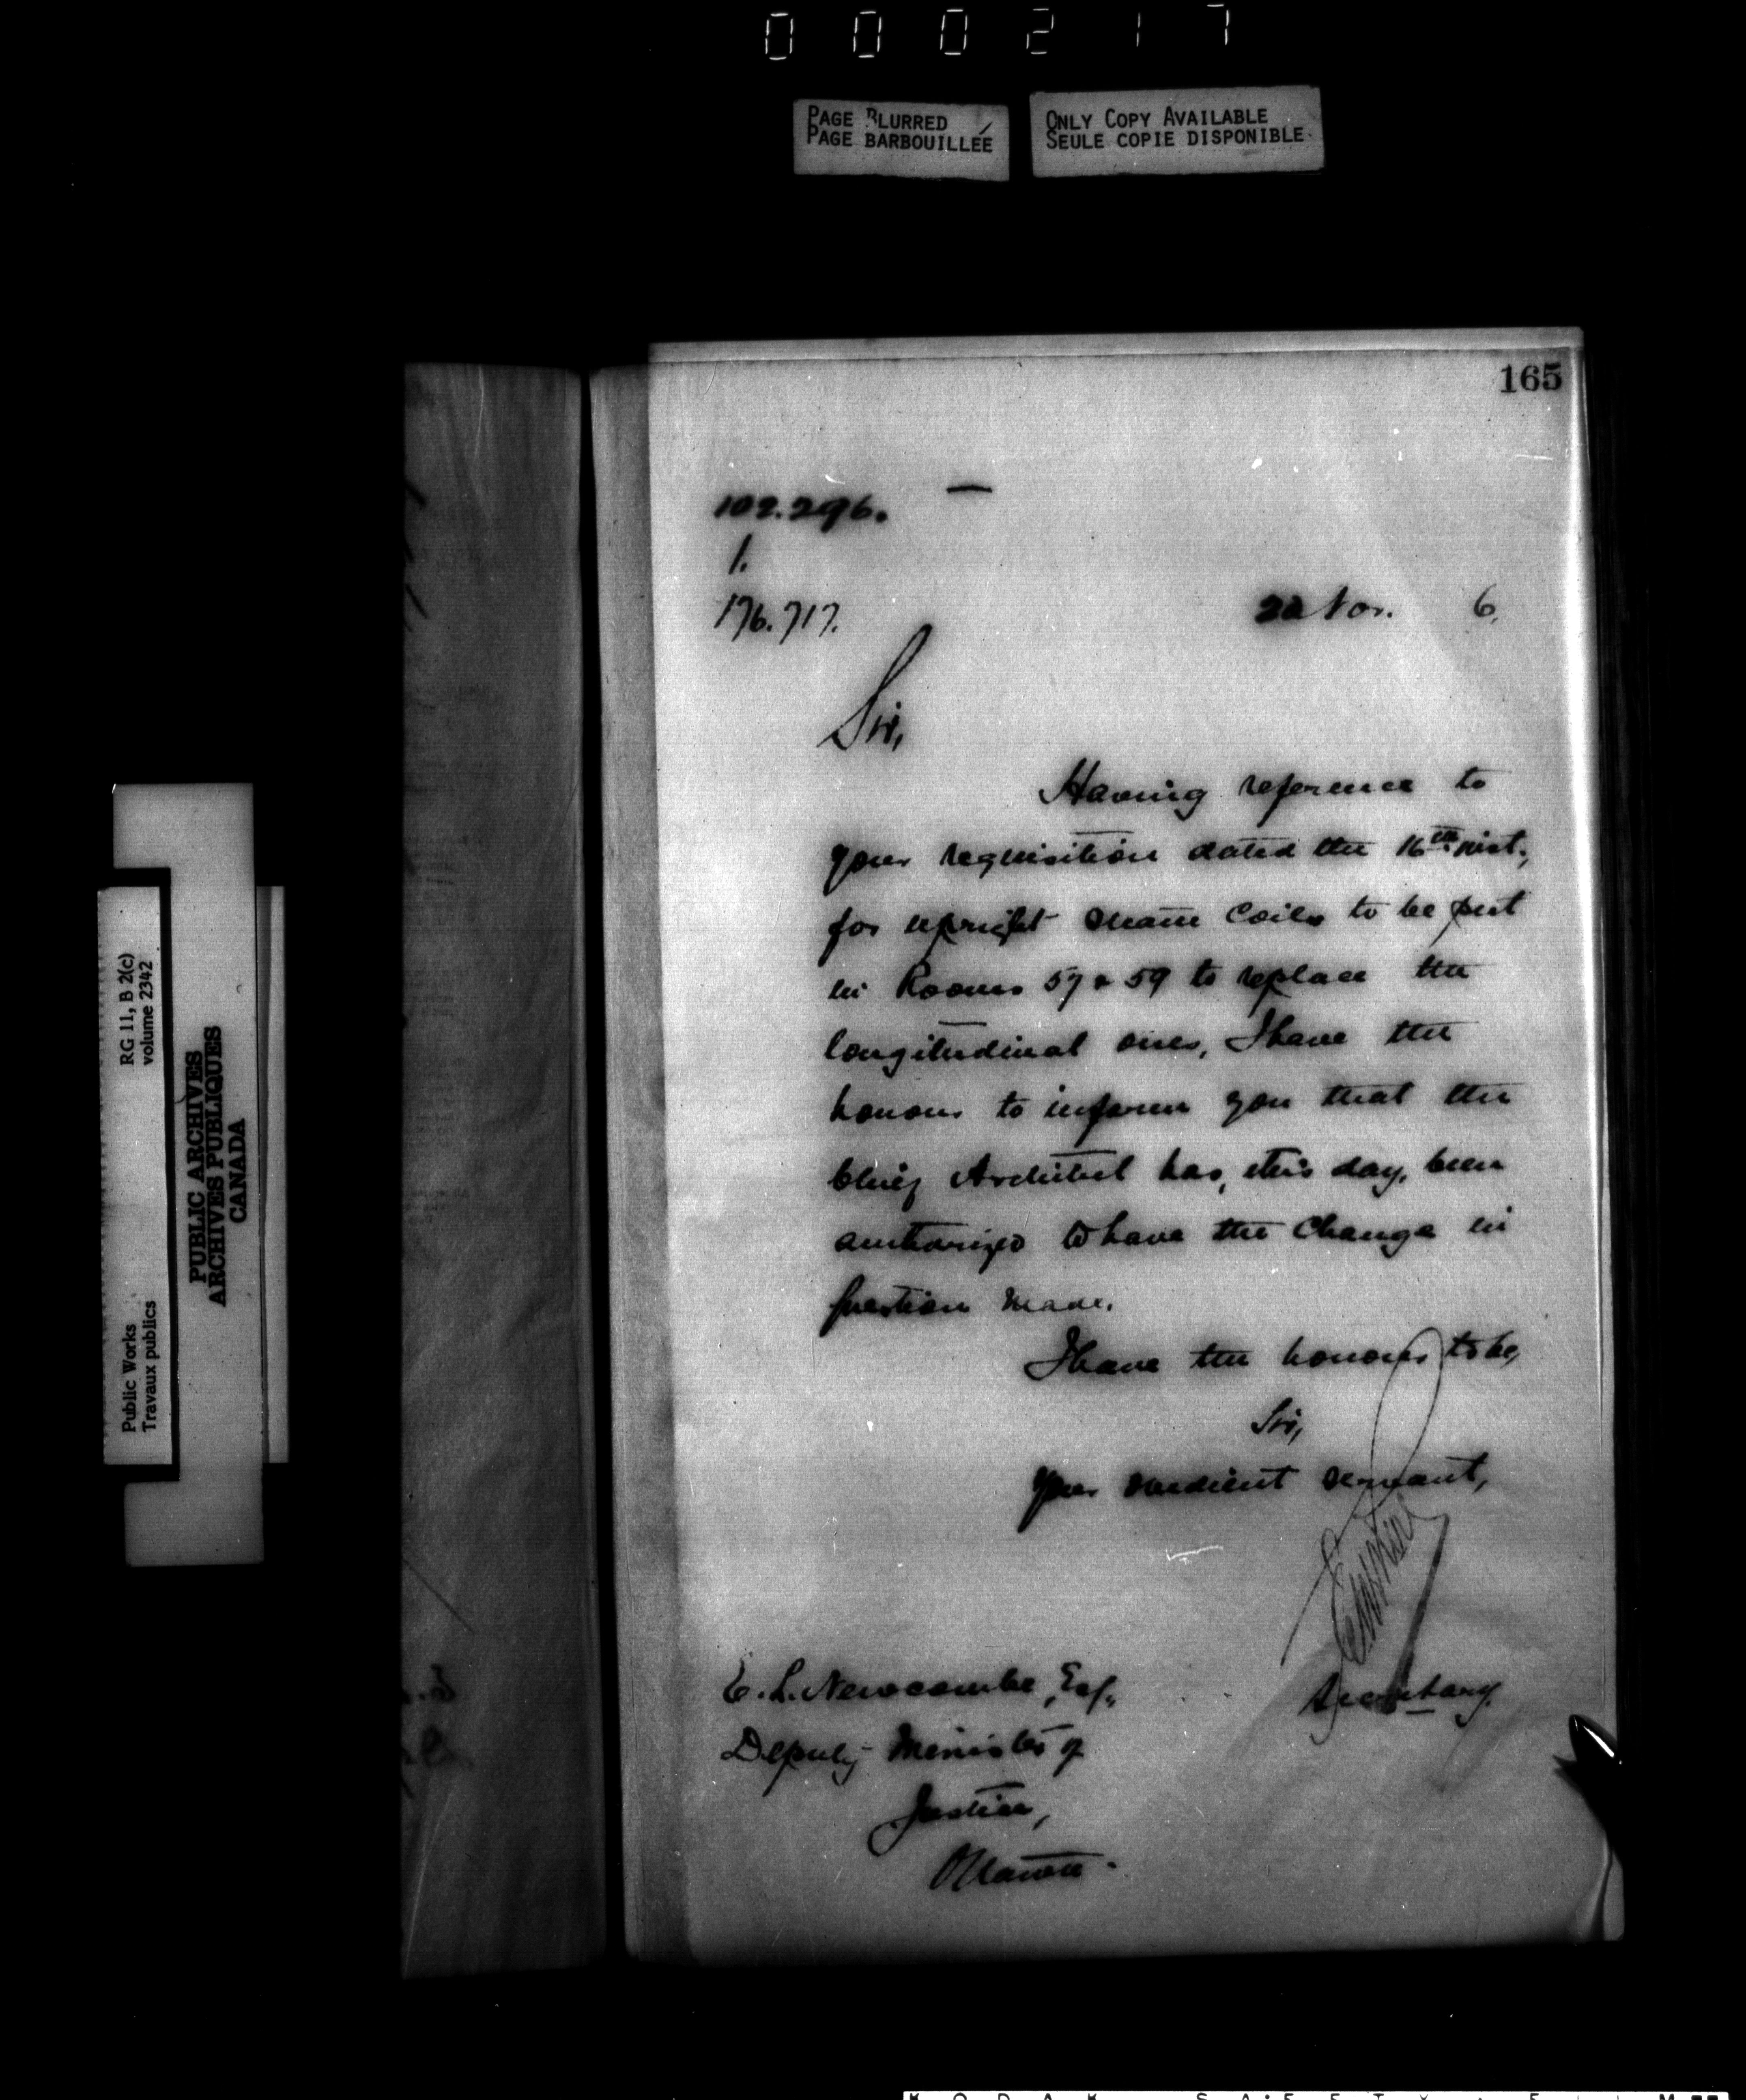 000217
PAGE BLURRED
PAGE BARBOUILLÉE
ONLY COPY AVAILABLE
SEULE COPIE DISPONIBLE
165
102.296.
1.
176.717.
Nov. 6.
Sir,
Having reference to
your requisition dated the 16th inst.,
for upright steam coils to be put
in Rooms 57 & 59 to replace the
longitudinal ones, I have the
honour to inform you that the
Chief Architect has, this day, been
authorized to have the change in
question made.
I have the honour to be,
Sir,
Your obedient servant,
Secretary.
E. L. Newcombe, Esq.,
Deputy Minister of
Justice,
Ottawa.
RG 11, B 2(c)
volume 2342
Public Works
Travaux publics
PUBLIC ARCHIVES
ARCHIVES PUBLIQUES
CANADA